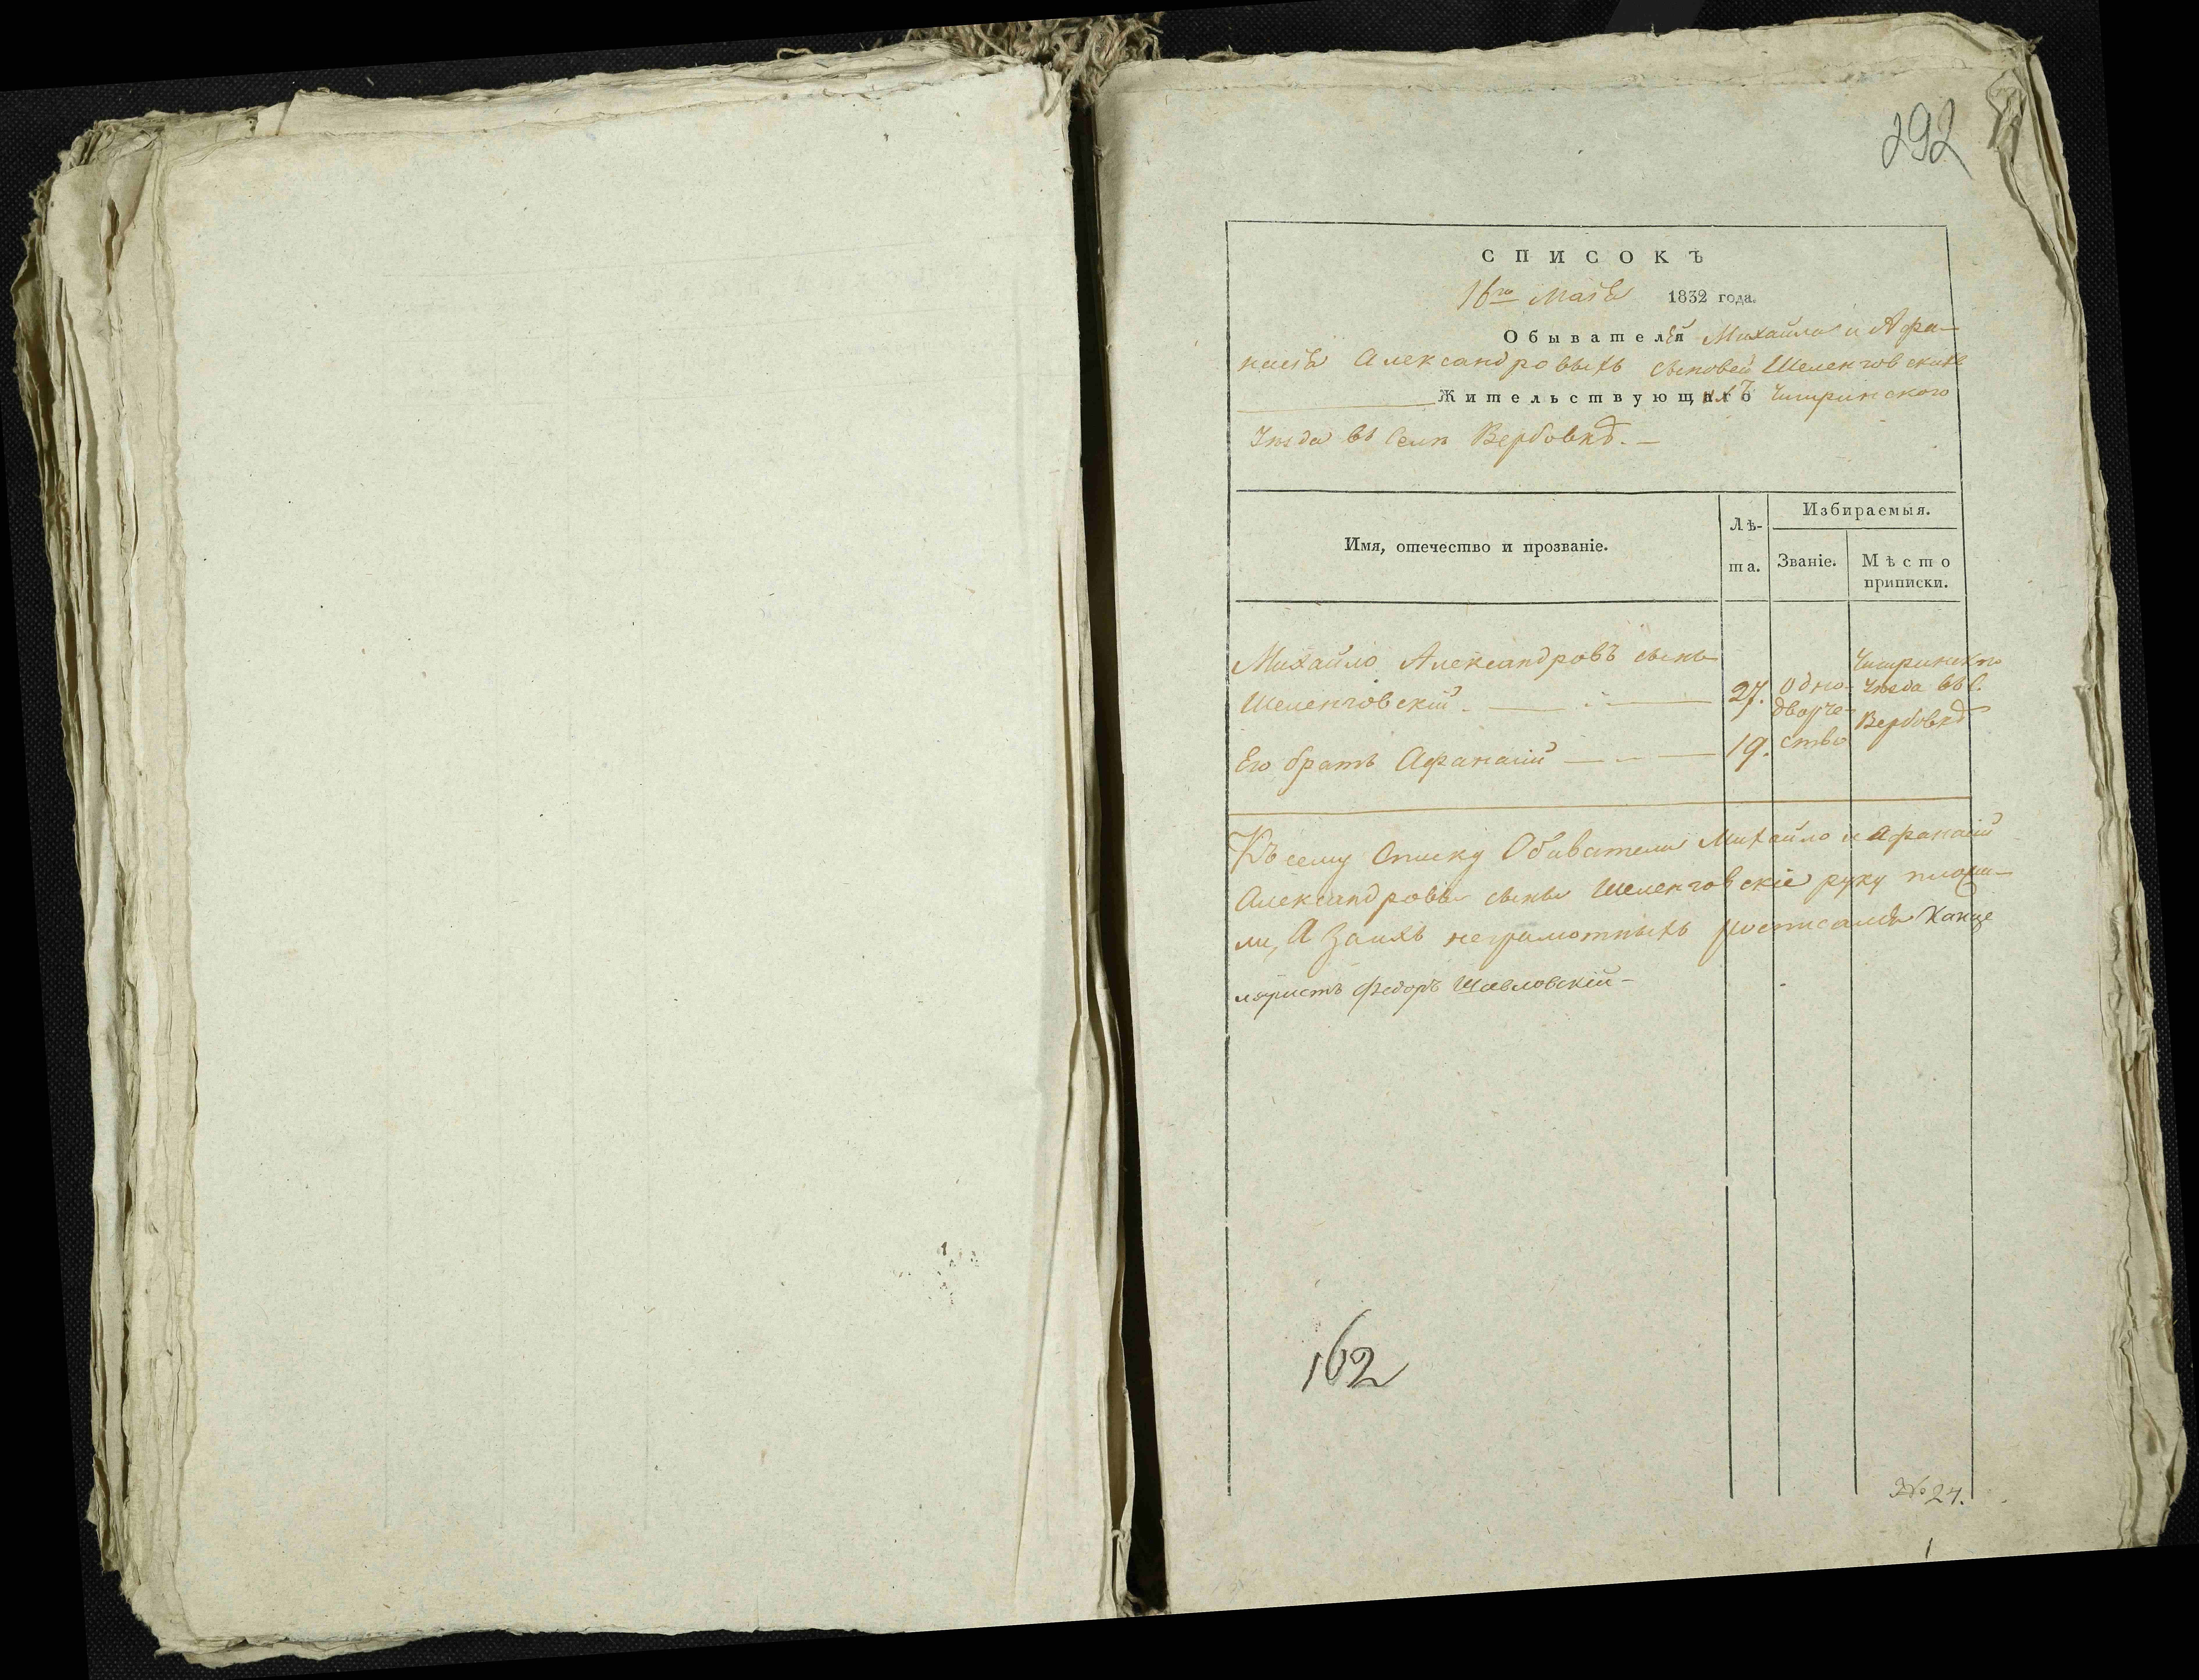 292
СПИСОКЪ
16го Маія 1832 года.
Обывателей Михайла и Афа-
насія Александровыхъ сыновей Шеленговскихъ
Жительствующихъ Чигринского
Уезда въ Селе Вербовкѣ. —
Имя, отечество и прозваніе.
Лѣ-
та.
Избираемыя.
Званіе.
Мѣсто
приписки.
Михайло Александровъ сынъ
Шеленговскій. — 27.
Его братъ Афанасій — 19.
Одно-
дворче-
ство
Чигринского
Уезда въ С.
Вербовкѣ
Къ сему Списку Обиватели Михайло и Афанасій
Александровы сыны Шеленговскіе руку пложи-
ли, А Заихъ неграмотныхъ росписался Канце
ляристъ Федоръ Шавловскій —
162
№ 24.